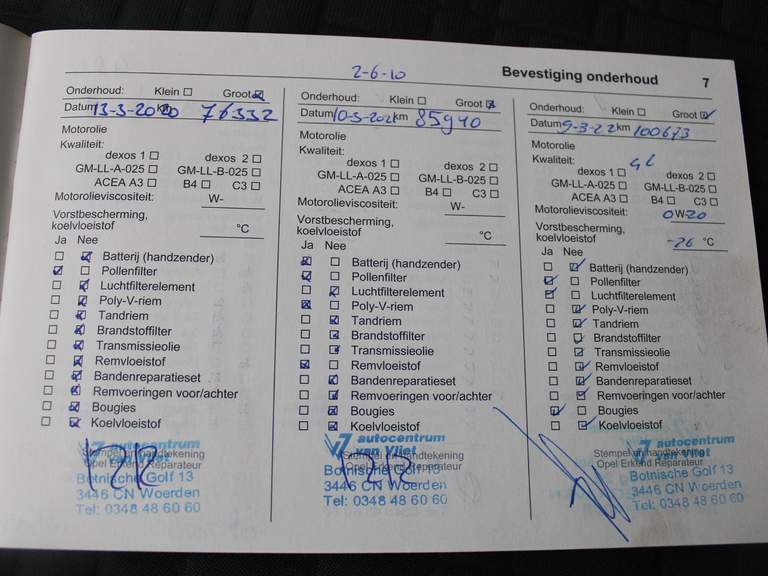 2-6-10
Bevestiging onderhoud 7
Onderhoud: Klein Groot
Datum 13-3-2020 km 76332
Motorolie
Kwaliteit:
dexos 1 dexos 2
GM-LL-A-025 GM-LL-B-025
ACEA A3 B4 C3
Motorolieviscositeit: W-
Vorstbescherming,
koelvloeistof °C
Ja Nee
Batterij (handzender)
Pollenfilter
Luchtfilterelement
Poly-V-riem
Tandriem
Brandstoffilter
Transmissieolie
Remvloeistof
Bandenreparatieset
Remvoeringen voor/achter
Bougies
Koelvloeistof
autocentrum
van Vliet
Stempel en handtekening
Opel Erkend Reparateur
Botnische Golf 13
3446 CN Woerden
Tel: 0348 48 60 60
Onderhoud: Klein Groot
Datum 10-3-2021 km 85940
Motorolie
Kwaliteit:
dexos 1 dexos 2
GM-LL-A-025 GM-LL-B-025
ACEA A3 B4 C3
Motorolieviscositeit: W-
Vorstbescherming,
koelvloeistof °C
Ja Nee
Batterij (handzender)
Pollenfilter
Luchtfilterelement
Poly-V-riem
Tandriem
Brandstoffilter
Transmissieolie
Remvloeistof
Bandenreparatieset
Remvoeringen voor/achter
Bougies
Koelvloeistof
autocentrum
van Vliet
Stempel en handtekening
Opel Erkend Reparateur
Botnische Golf 13
3446 CN Woerden
Tel: 0348 48 60 60
Onderhoud: Klein Groot
Datum 9-3-22 km 100673
Motorolie
Kwaliteit: 4L
dexos 1 dexos 2
GM-LL-A-025 GM-LL-B-025
ACEA A3 B4 C3
Motorolieviscositeit: 0W-20
Vorstbescherming,
koelvloeistof -26 °C
Ja Nee
Batterij (handzender)
Pollenfilter
Luchtfilterelement
Poly-V-riem
Tandriem
Brandstoffilter
Transmissieolie
Remvloeistof
Bandenreparatieset
Remvoeringen voor/achter
Bougies
Koelvloeistof
autocentrum
van Vliet
Stempel en handtekening
Opel Erkend Reparateur
Botnische Golf 13
3446 CN Woerden
Tel: 0348 48 60 60